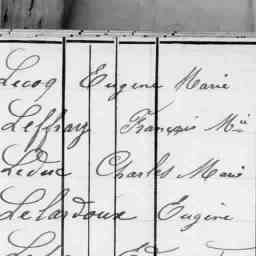 Lecoq Eugene Marie
Leffray François Mie
Leduc Charles Marie
Lelardoux Eugène